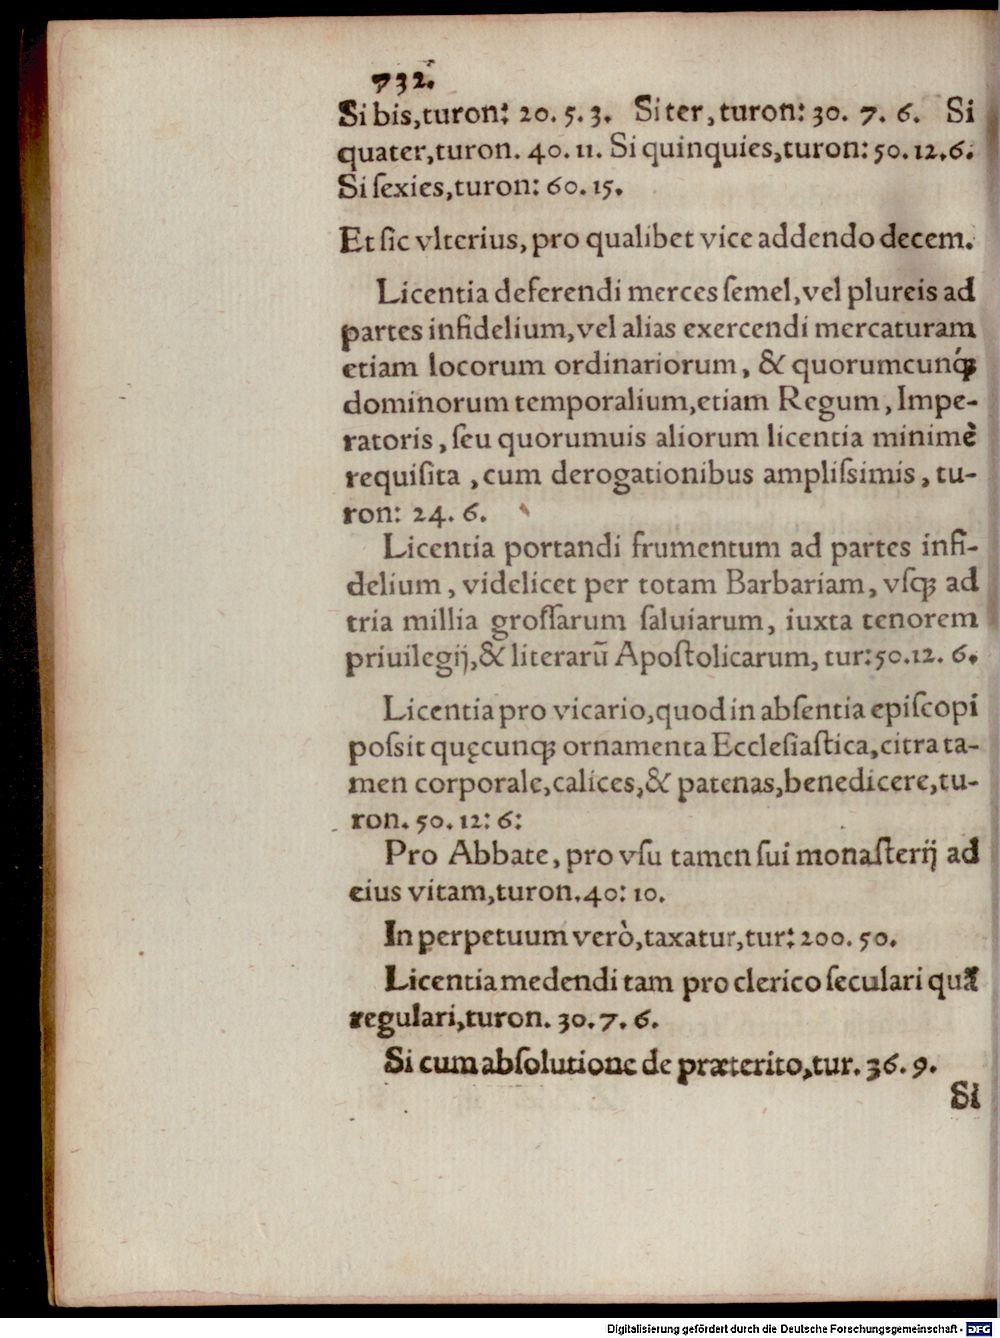 732.
Si bis,turon: 20. 5. 3. Si ter, turon: 30. 7. 6. Si
quater,turon. 40. 11. Si quinquies,turon: 50. 12. 6.
Si ſexies,turon: 60. 15.
Et ſic vlterius, pro qualibet vice addendo decem.
Licentia deferendi merces ſemel,vel plureis ad
partes infidelium,vel alias exercendi mercaturam
etiam locorum ordinariorum, & quorumcunq́;
dominorum temporalium,etiam Regum, Impe-
ratoris, ſeu quorumuis aliorum licentia minimè
requiſita , cum derogationibus ampliſsimis, tu-
ron: 24. 6.
Licentia portandi frumentum ad partes infi-
delium, videlicet per totam Barbariam, vſq; ad
tria millia groſſarum ſaluiarum, iuxta tenorem
priuilegij,& literarū Apoſtolicarum, tur: 50. 12. 6.
Licentia pro vicario,quod in abſentia epiſcopi
poſsit quęcunq; ornamenta Eccleſiaſtica,citra ta-
men corporale,calices,& patenas,benedicere,tu-
ron. 50. 12: 6:
Pro Abbate, pro vſu tamen ſui monaſterij ad
eius vitam,turon. 40: 10.
In perpetuum verò,taxatur,tur: 200. 50.
Licentia medendi tam pro clerico ſeculari quã
regulari,turon. 30. 7. 6.
Si cum abſolutione de præterito,tur. 36. 9.
Si
Digitalisierung gefördert durch die Deutsche Forschungsgemeinschaft - DFG